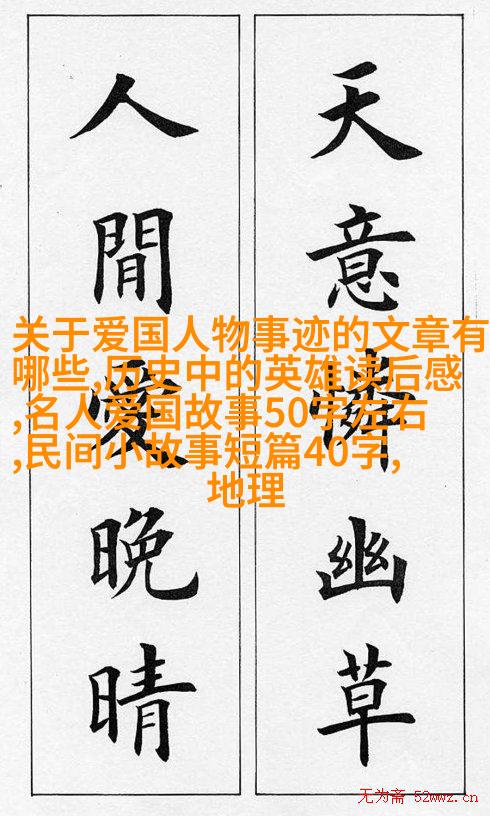 天意憐幽草
人間愛晚晴
关于爱国人物事迹的文章有
哪些,历史中的英雄读后感
,名人爱国故事50字左右
,民间小故事短篇40字,
地理
无为斋 52wwz.cn